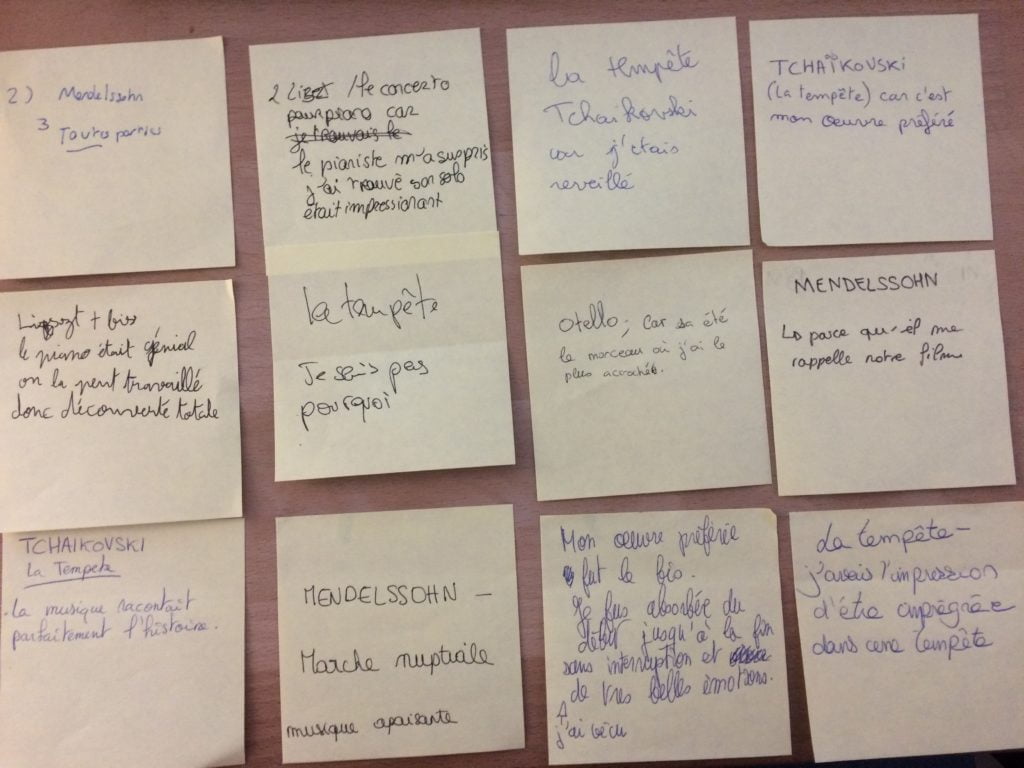 2) Mendelssohn
3
2 Liszt / le concerto
pour piano car
je trouvais le
le pianiste m'a suppris
j'ai trouvé son solo
était impressionant
la tempête
Tchaikovski
car j'étais
reveillé
TCHAÏKOVSKI
(La tempête) car c'est
mon œuvre préféré
+ bis
le piano était génial
on la peut travaillé
donc découverte totale
la tempête
Je sais pas
pourquoi
Otello; Car sa été
le morceau où j'ai le
plus accroché.
MENDELSSOHN
parce qu'il me
rappelle notre film
TCHAIKOVSKI
La Tempete
. La musique racontait
parfaitement l'histoire.
MENDELSSOHN -
Marche nuptiale
musique apaisante
Mon œuvre préférée
fut le bis.
Je fus absorbée du
début jusqu'à la fin
sans interruption et
de très belles émotions.
j'ai vécu
La tempête -
j'avais l'impression
d'être imprégnée
dans cette tempête